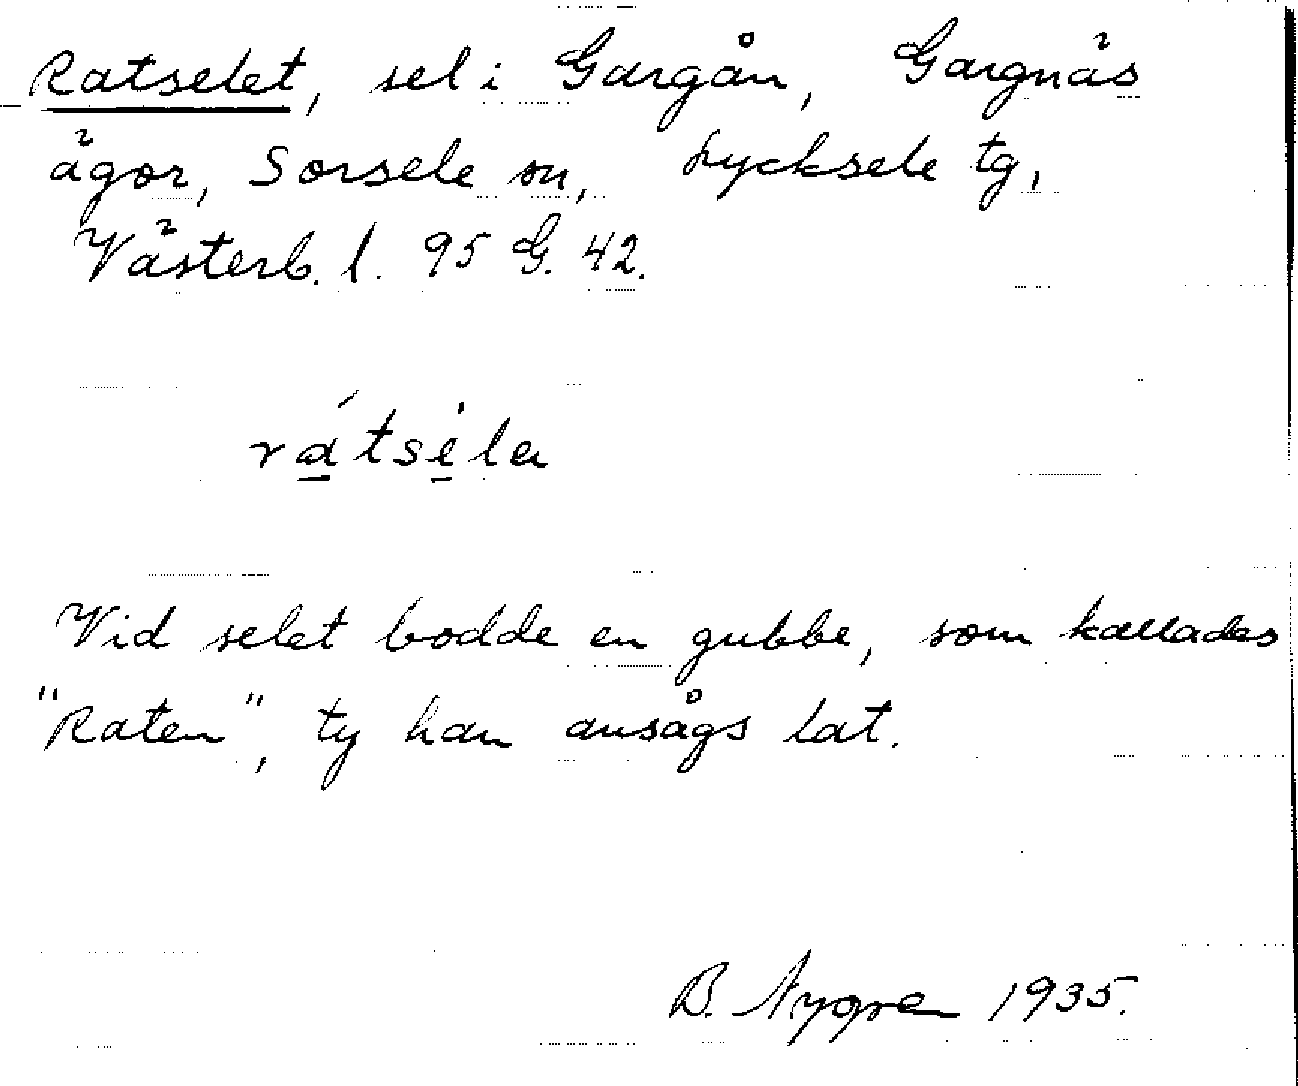 Ratselet, sel i Gargån, Gargnäs
ägor, Sorsele sn, Lycksele tg,
Västerb. l. 95 G. 42.
rátséla
Vid selet bodde en gubbe, som kallades
"Raten", ty han ansågs lat.
B. Nygren 1935.